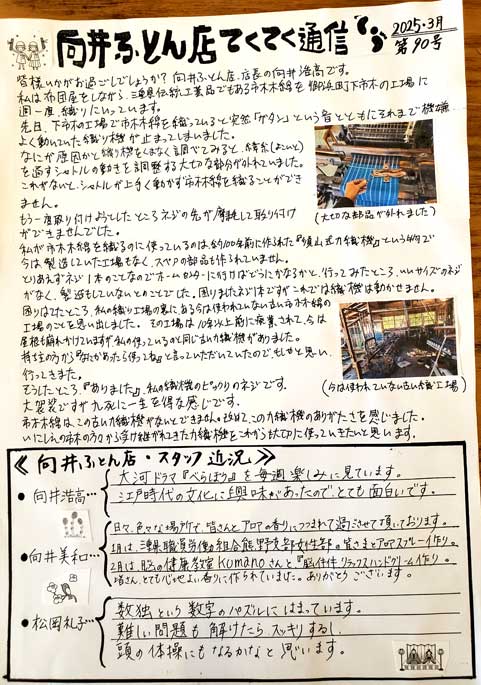 向井ふとん店てくてく通信
2025・3月
第90号
皆様いかがお過ごしでしょうか？向井ふとん店、店長の向井浩高です。
私は布団屋をしながら、三重県伝統工芸品でもある市木木綿を御浜町下市木の工場に
週一度、織りにいっています。
先日、下市木の工場で市木木綿を織っていると突然「ゲタン」という音とともにそれまで機嫌
よく動いていた織り機が止まってしまいました。
なにが原因かと織り機をくまなく調べてみると、緯糸(よこいと)
を通すシャトルの動きを調整する大切な部分が外れていました。
これがないと、シャトルが上手く動かず市木木綿を織ることができ
ません。
もう一度取り付けようとしたところネジの先が摩耗して取り付け
ができませんでした。
(大切な部品が外れました)
私が市木木綿を織るのに使っているのは、約100年前に作られた『須山式力織機』という物で
今は製造していた工場もなく、スペアの部品も作られていません。
とりあえずネジ1本のことなのでホームセンターに行けばどうにかなるかと、行ってみたところ、いいサイズのネジ
がなく、製造もしていないとのことでした。困りましたネジ1本ですがこれでは織機は動かせません。
困りはてたところ、私の織り工場の裏にある今は使われていない古い市木木綿の
工場のことを思い出しました。その工場は10年以上前に廃業されて、今は
屋根も崩れかけてますが私の使っているのと同じ古い力織機がありました。
持主の方から『なにかあったら使ってね』と言っていただいていたので、もしやと思い、
行ってきました。
そうしたところ、『ありました』、私の織機にピックリのネジです。
大袈裟ですが九死に一生を得た感じです。
(今は使われていない古い織工場)
市木木綿は、この古い力織機がないとできません。改めて、この力織機のありがたさを感じました。
いにしえの市木の方々から受け継がれてきた力織機をこれからも大切に使っていきたいと思います。
《向井ふとん店・スタッフ近況》
●向井浩高…
大河ドラマ『べらぼう』を毎週楽しみに見ています。
江戸時代の文化に興味があったので、とても面白いです。
●向井美和…
日々、色々な場所で、皆さんとアロマの香りにつつまれて過ごさせて頂いております。
1月は、三重県職員労働組合熊野支部女性部の皆さまとアロマスプレー作り。
2月は、脳の健康教室Kumanoさんと『脳活性リラックスハンドクリーム作り。
皆さん、とても心地よい香りに作られていました。ありがとうございます。
●松岡礼子…
数独という数字のパズルにはまっています。
難しい問題も解けたらスッキリするし、
頭の体操にもなるかなと思います。